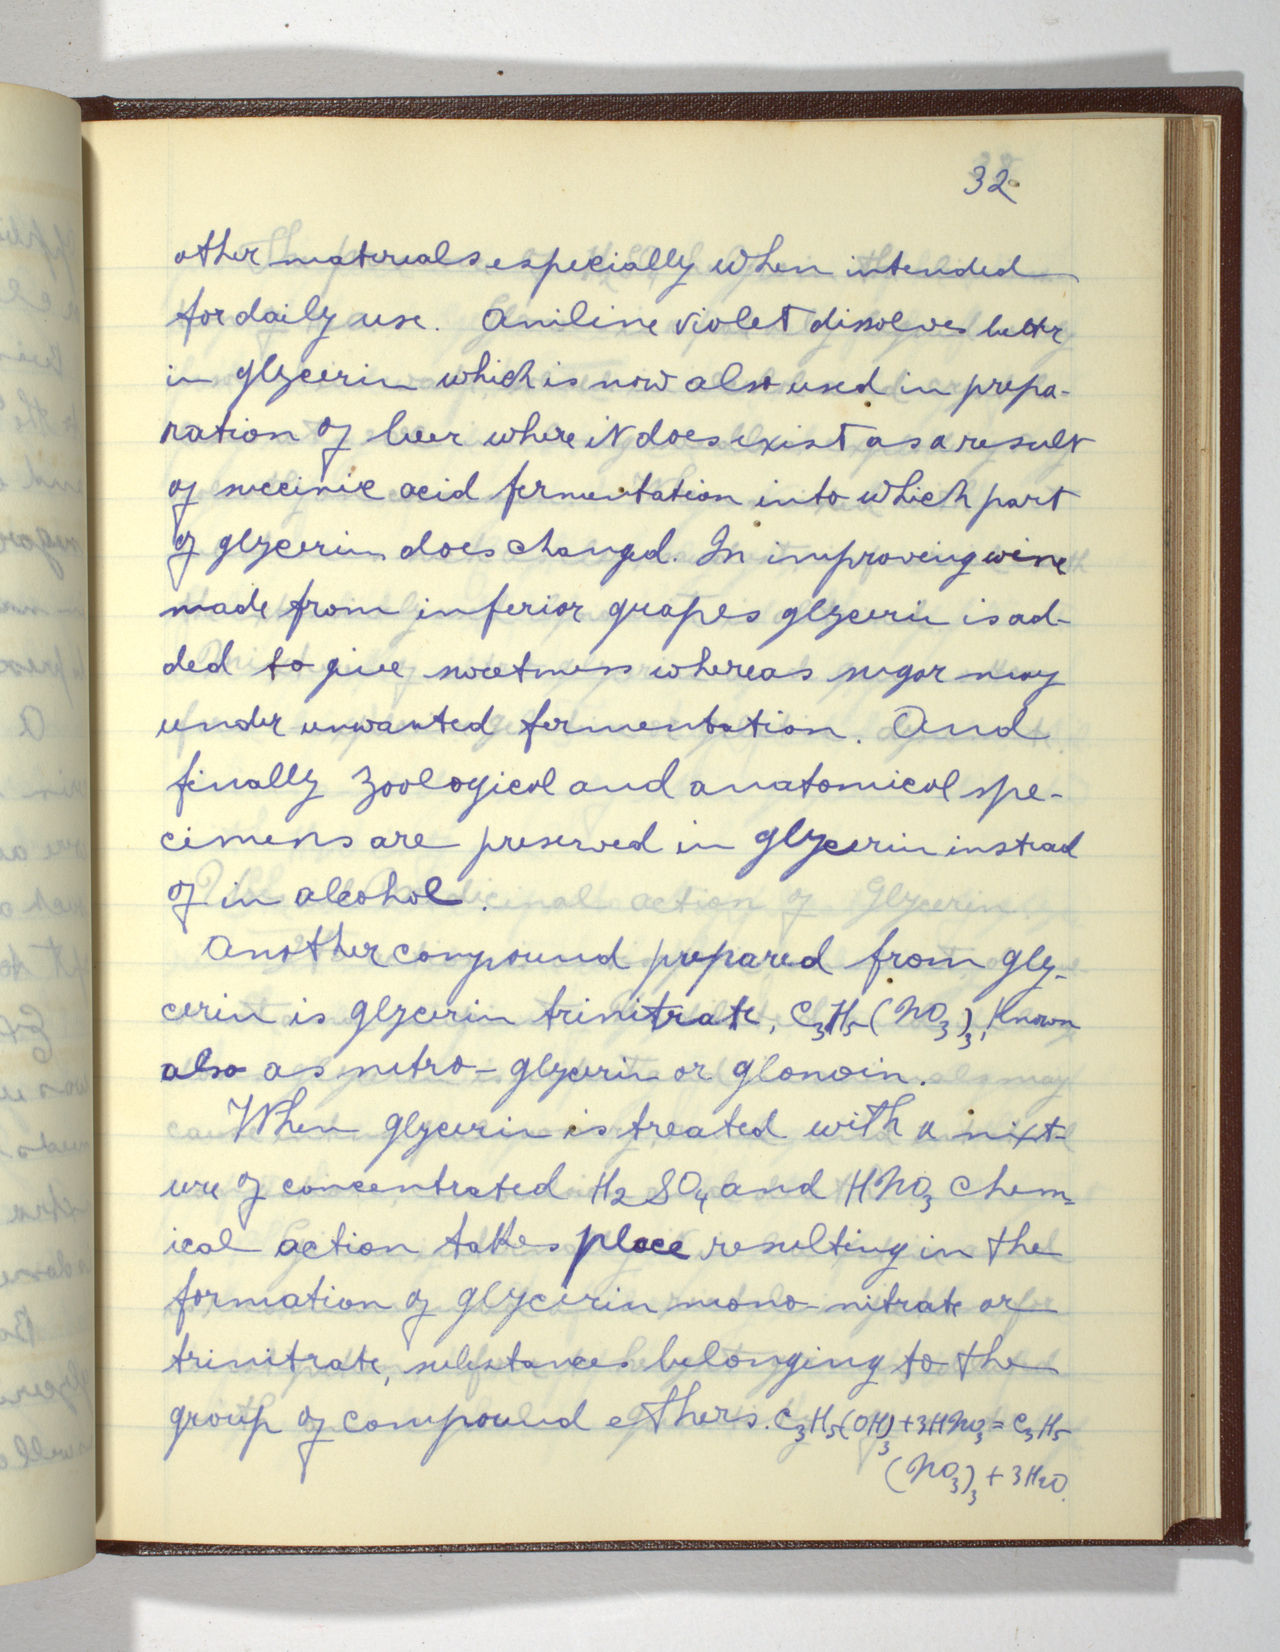 32
other materials especially when intended
for daily use. Aniline violet dissolves better
in glycerin which is now also used in prepa-
ration of beer where it does exist as a result
of succinic acid fermentation into which part
of glycerin does changed. In improving wine
made from inferior grapes glycerin is ad-
ded to give sweetness whereas sugar may
under unwanted fermentation. And
finally zoological and anatomical spe-
cimens are preserved in glycerin instead
of in alcohol.
Another compound prepared from gly-
cerin is glycerin trinitrate, C₃H₅(NO₃)₃, known
also as nitro-glycerin or glonoin.
When glycerin is treated with a mixt-
ure of concentrated H₂SO₄ and HNO₃ chem-
ical action takes place resulting in the
formation of glycerin mono-nitrate or
trinitrate, substances belonging to the
group of compound ethers. C₃H₅(OH)₃+3HNO₃=C₃H₅
(NO₃)₃+3H₂O.